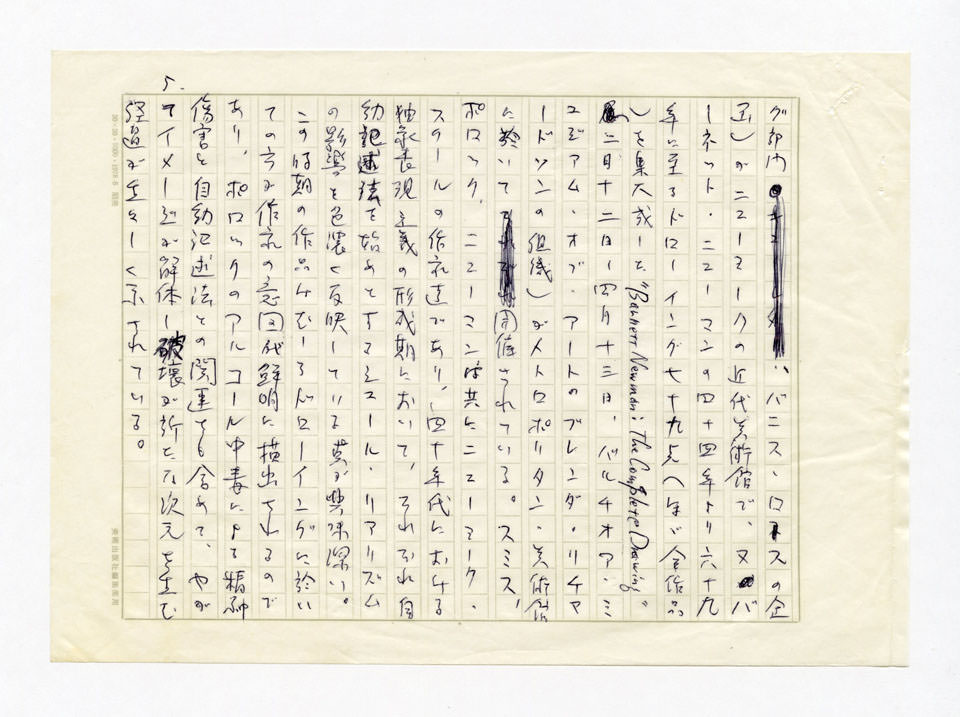 グ部内 、バニス・ローズの企
画）がニューヨークの近代美術館で、又 バ
ーネット・ニューマンの四十四年より六十九
年に至るドローイング七十九点（年で全作品
）を集大成した "Barnett Newman: The Complete Drawing"
二月十二日ー四月十三日、バルチオア・ミ
ュジアム・オブ・アートのブレンダ・リチャ
ードソンの組織）がメトロポリタン・美術館
に於いて 開催されている。スミス、
ポロック、ニューマンは共にニューヨーク・
スクールの作家達であり、四十年代における
抽象表現主義の形成期において、それぞれ自
動記述法を始めとするシュール・リアリズム
の影響を色濃く反映している点が興味深い。
この時期の作品はむしろドローイングに於い
ての方が作家の意図が鮮明に描出されるので
あり、ポロックのアルコール中毒によて精神
傷害と自動記述法との関連でも含めて、やが
てイメージが解体し破壊が新たな次元を生む
経過が生々しく示されている。
5.
20×20